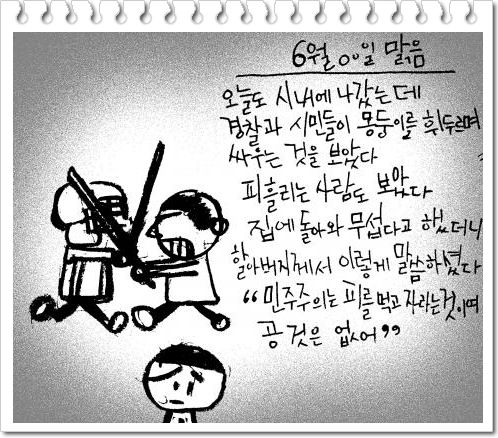 6월 00일 맑음
오늘도 시내에 나갔는데
경찰과 시민들이 몽둥이를 휘두르며
싸우는 것을 보았다
피흘리는 사람도 보았다
집에 돌아와 무섭다고 했더니
할아버지께서 이렇게 말씀하셨다
“민주주의는 피를 먹고 자라는것이며
공것은 없어”